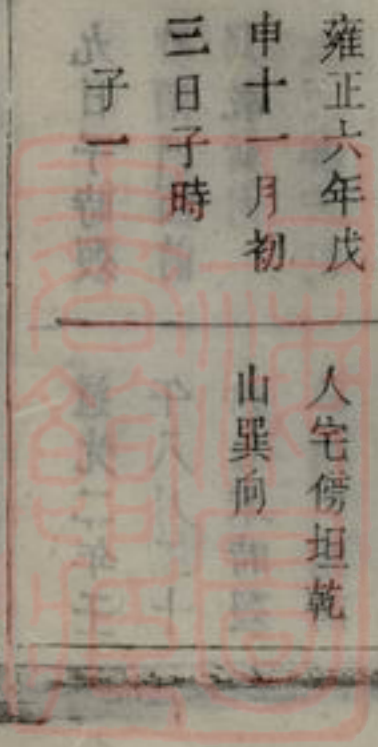 雍正六年戊
申十一月初
三日子時
子一
人宅傍坦乾
山巽向